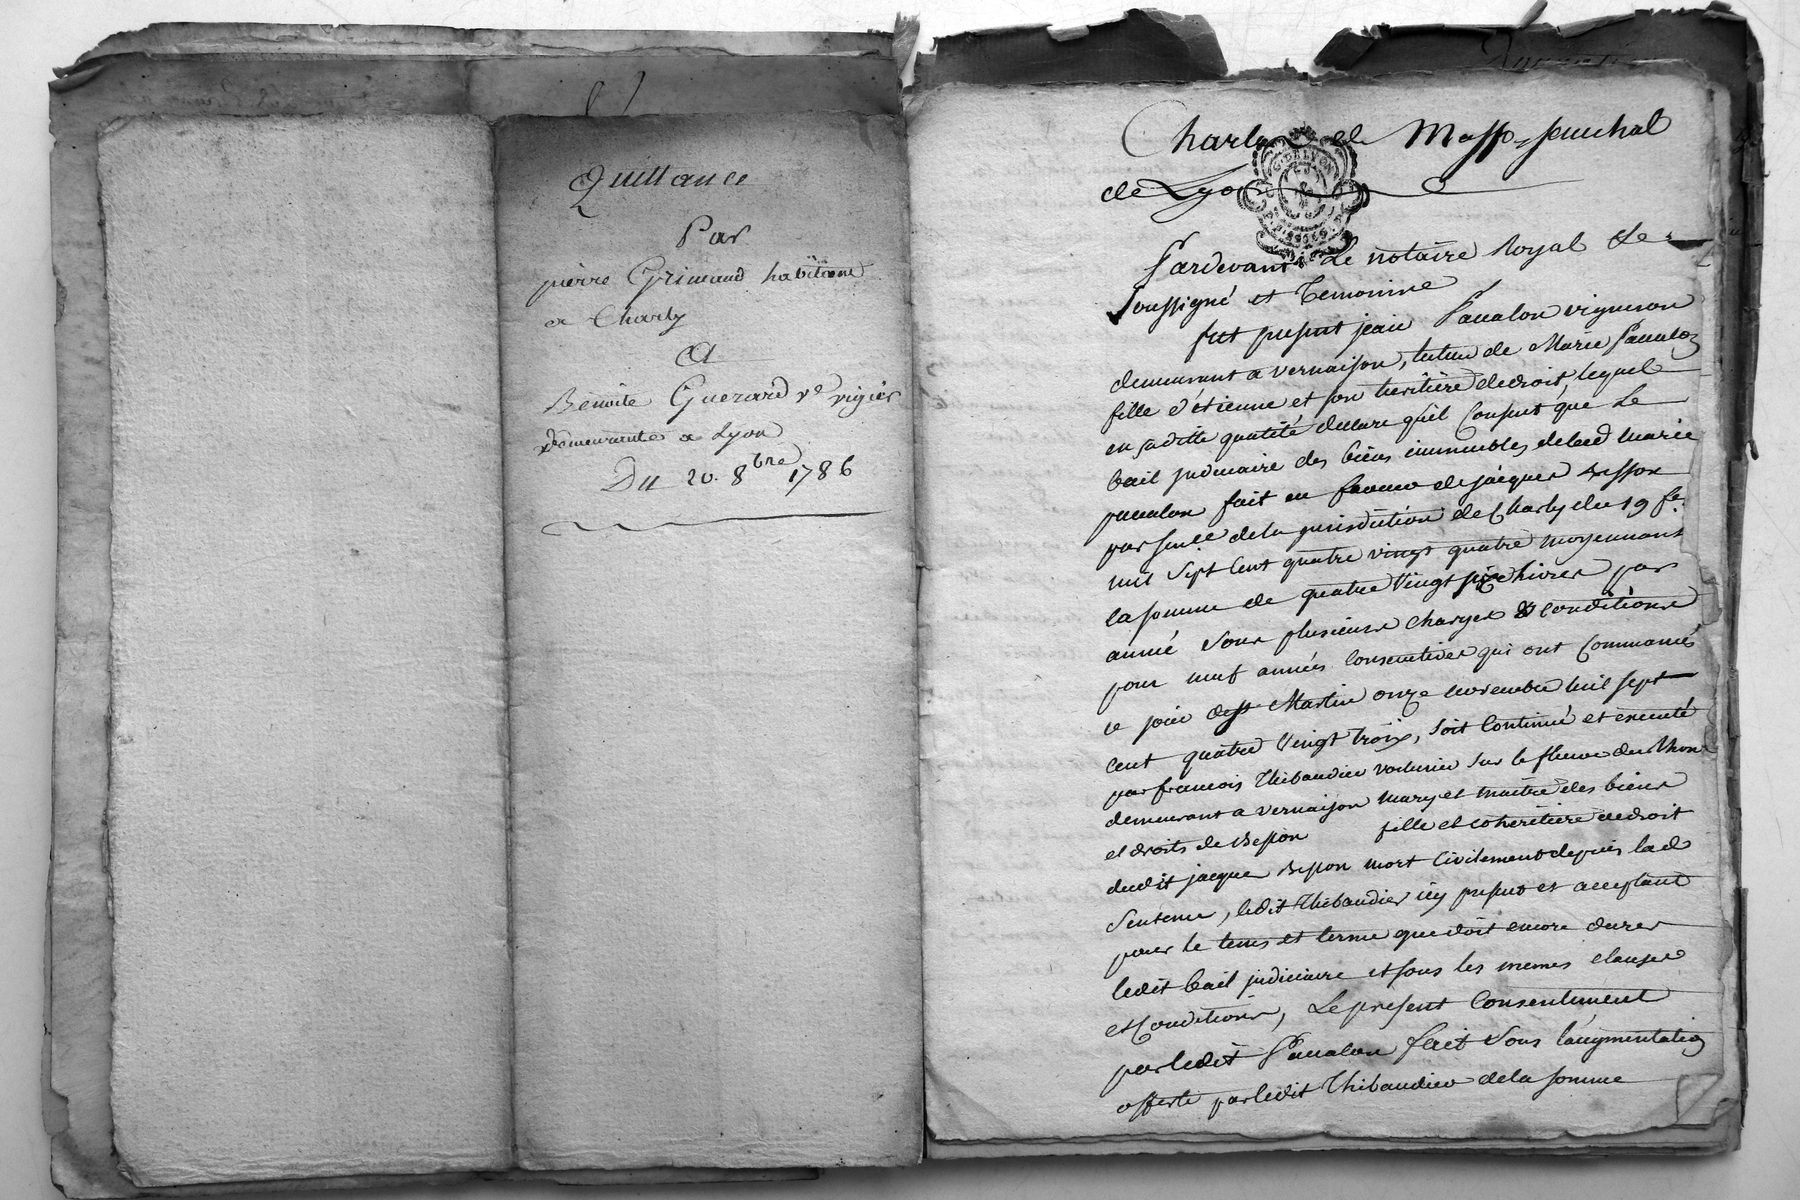 Quittance
Par
pierre Grimaud habitant
a Charly
A
Benoite Guerard ve vigier
demeurante a Lyon
Du 20. 8bre 1786
Charly
de Lyon
G. DE LYON
Pardevant Le notaire Royal
soussigné et temoins
fut present jean Paualon vigneron
demeurant a vernaison, tuteur de Marie Paualon
fille d'étienne et son heritière de droit, lequel
en sa ditte qualité declare qu'il Consent que Le
bail judiciaire des biens immeubles de lad marie
paualon fait en faveur de jacques Besson
par sence de la jurisdiction de Charly du 19 fe.
mil sept Cent quatre vingt quatre moyennant
la somme de quatre vingt Livres par
année sous plusieurs charges & conditions
pour neuf années Consecutives qui ont Commancés
le jour de st Martin onze novembre mil sept
Cent quatre vingt trois, soit Continué et executé
par francois Thibaudier voiturier sur le fleuve du Rhone
demeurant a vernaison mary et maitre des biens
et droits de Besson fille et coheritière de droit
dudit jacques Besson mort Civilement depuis lad
Sentence, ledit Thibaudier icy present et acceptant
pour le tems et terme que doit encore durer
ledit bail judiciaire et sous les memes clauses
et Conditions, Le present Consentement
par ledit Paualon fait sous l'augmentation
offerte par ledit Thibaudier de la somme